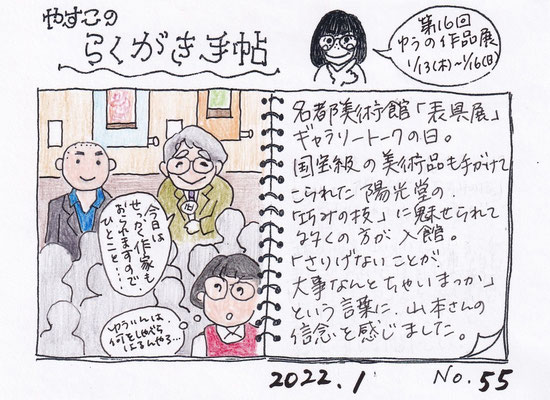 やすこの
らくがき手帖
第16回
ゆうの作品展
1/13(木)~1/16(日)
今日は
せっかく作家も
おられますので
ひとこと…
ゆういんは
何をしゃべら
はるんやろ…
名都美術館「表具展」
ギャラリートークの日。
国宝級の美術品も手がけて
こられた陽光堂の
「巧みの技」に魅せられて
多くの方が入館。
「さりげないことが
大事なんとちゃいまっか」
という言葉に、山本さんの
信念を感じました。
2022.1 No.55